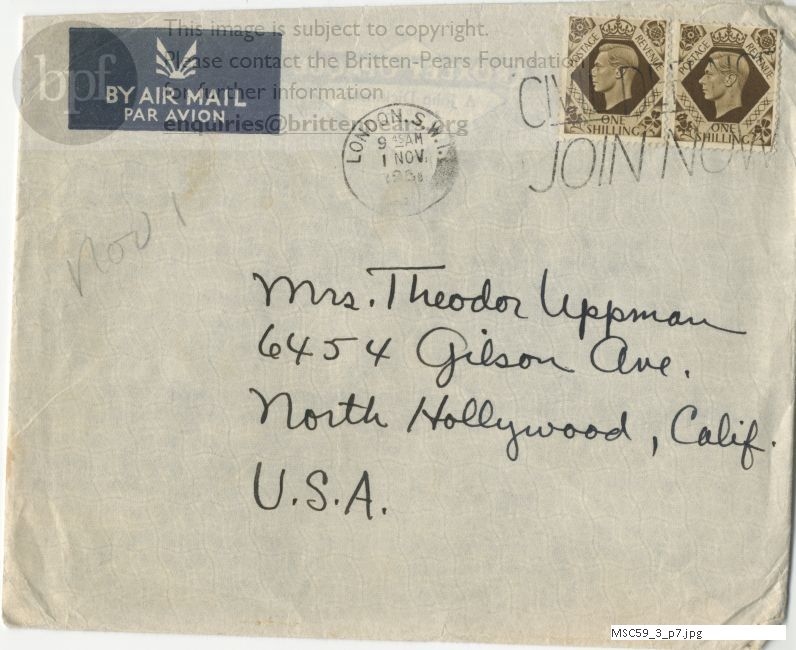 This image is subject to copyright.
Please contact the Britten-Pears Foundation
for further information
enquiries@brittenpears.org
bpf
BY AIR MAIL
PAR AVION
LONDON. S.W.1.
9 45 AM
1 NOV.
CIVIL
JOIN NOW
POSTAGE REVENUE
ONE SHILLING
POSTAGE REVENUE
ONE SHILLING
Nov 1
Mrs. Theodor Uppman
6454 Gilson Ave.
North Hollywood, Calif.
U.S.A.
MSC59_3_p7.jpg